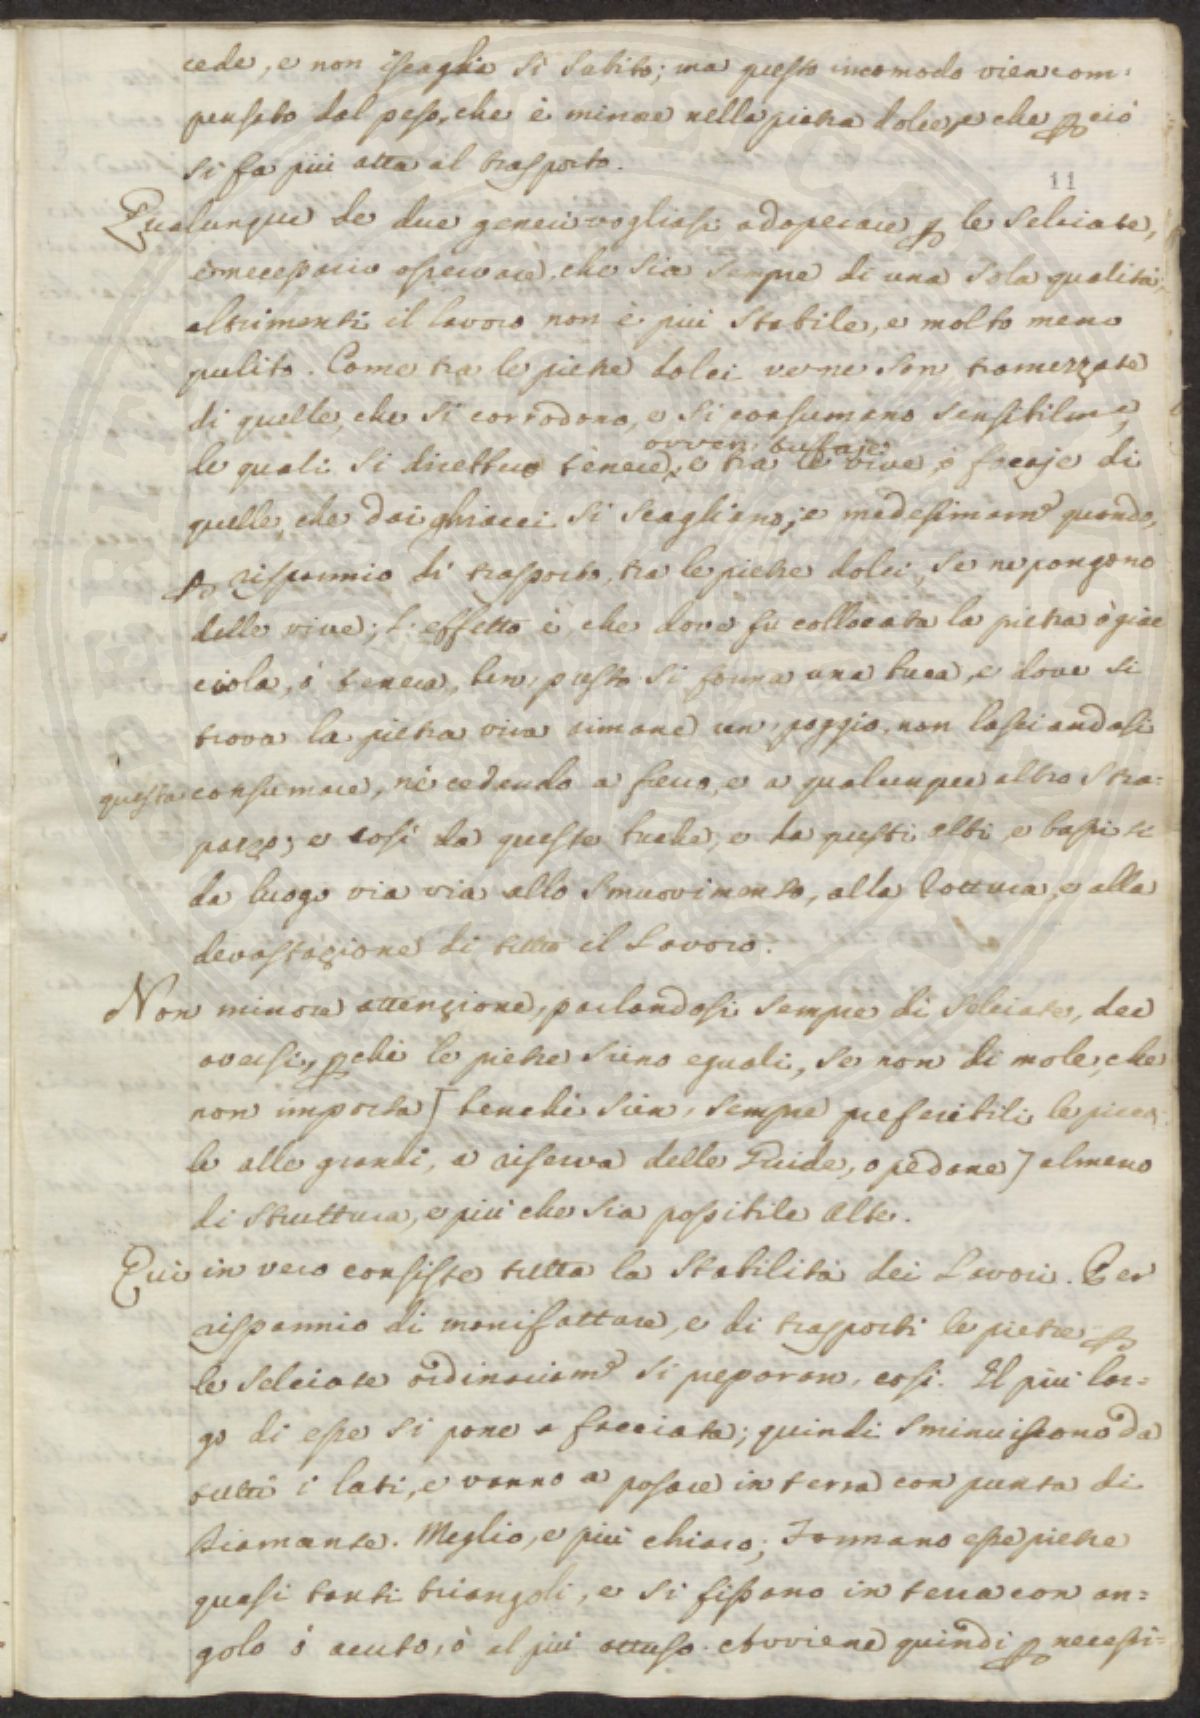 cede, e non iscaglia sì subito; ma questo incomodo vien com:
pensato dal peso, che è minore nella pietra dolce, e che p ciò
si fa più atta al trasporto.
11
Qualunque de due generi vogliasi adoperare p le Selciate,
è necessario osservare, che sia sempre di una sola qualità,
altrimenti il lavoro non è più stabile, e molto meno
pulito. Come tra le pietre dolci ve ne son tramezzate
di quelle, che si corrodono, e si consumano sensibilme,
ovvero tufaje
le quali si direttuo tènere, e tra le vive, ò focaje di
quelle, che dai ghiacci si scagliano; e medesimam.e quando,
p risparmio di trasporto, tra le pietre dolci, se ne pongono
delle vive; l'effetto è, che dove fu collocata la pietra ò giac
ciola, ò tenera, ben, presto si forma una buca, e dove si
trova la pietra viva rimane un poggio, non lasciandosi
questa consumare, nè cedendo a ferro, e a qualunque altro stra=
pazzo; e così da queste buche, e da questi alti, e bassi si
da luogo via via allo smuovimento, alla rottura, e alla
devastazione di tutto il Lavoro.
Non minore attenzione, parlandosi sempre di Selciate, dee
aversi, pchè le pietre sieno eguali, se non di mole, che
non importa [benchè sien, sempre preferibili le picco
le alle grandi, a riserva delle Guide, o pedane] almeno
di struttura, e più che sia possibile alte.
Qui in vero consiste tutta la Stabilità dei Lavori. Per
risparmio di manifatture, e di trasporti le pietre p
le Selciate ordinariam.e si preparan, così. Il più lar=
go di esse si pone a facciata; quindi sminuiscono da
tutti i lati, e vanno a posare in terra con punta di
diamante. Meglio, e più chiaro; Formano esse pietre
quasi tanti triangoli, e si fissano in terra con an=
golo ò acuto, ò al più ottuso. Avviene quindi p necessi=